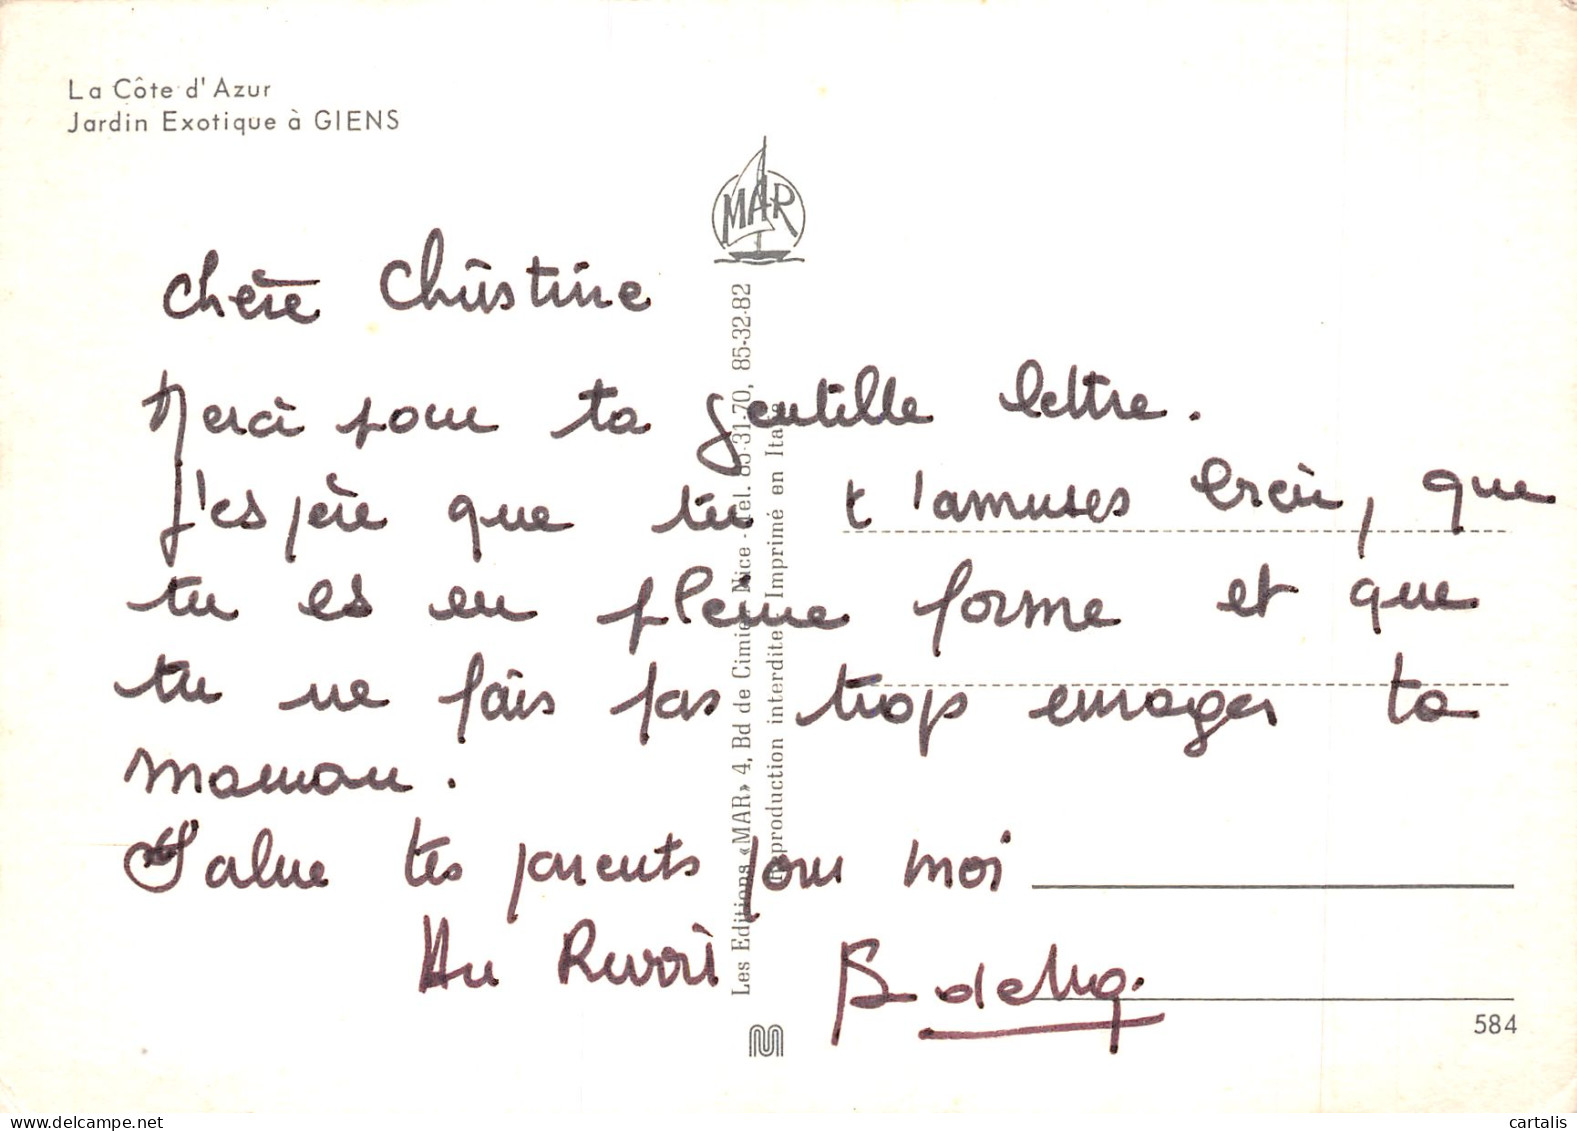 La Côte d'Azur
Jardin Exotique à GIENS
MAR
Chère Christine
Merci pour ta gentille lettre.
J'espère que tu t'amuses bien, que
tu es en pleine forme et que
tu ne fais pas trop enrager ta
maman.
Salue tes parents pour moi
Au Revoir
Les Editions «MAR» 4, Bd de Cimiez Nice - Tel. 85-31-70, 85-32-82
Reproduction interdite Imprimé en Italie
584
cartalis